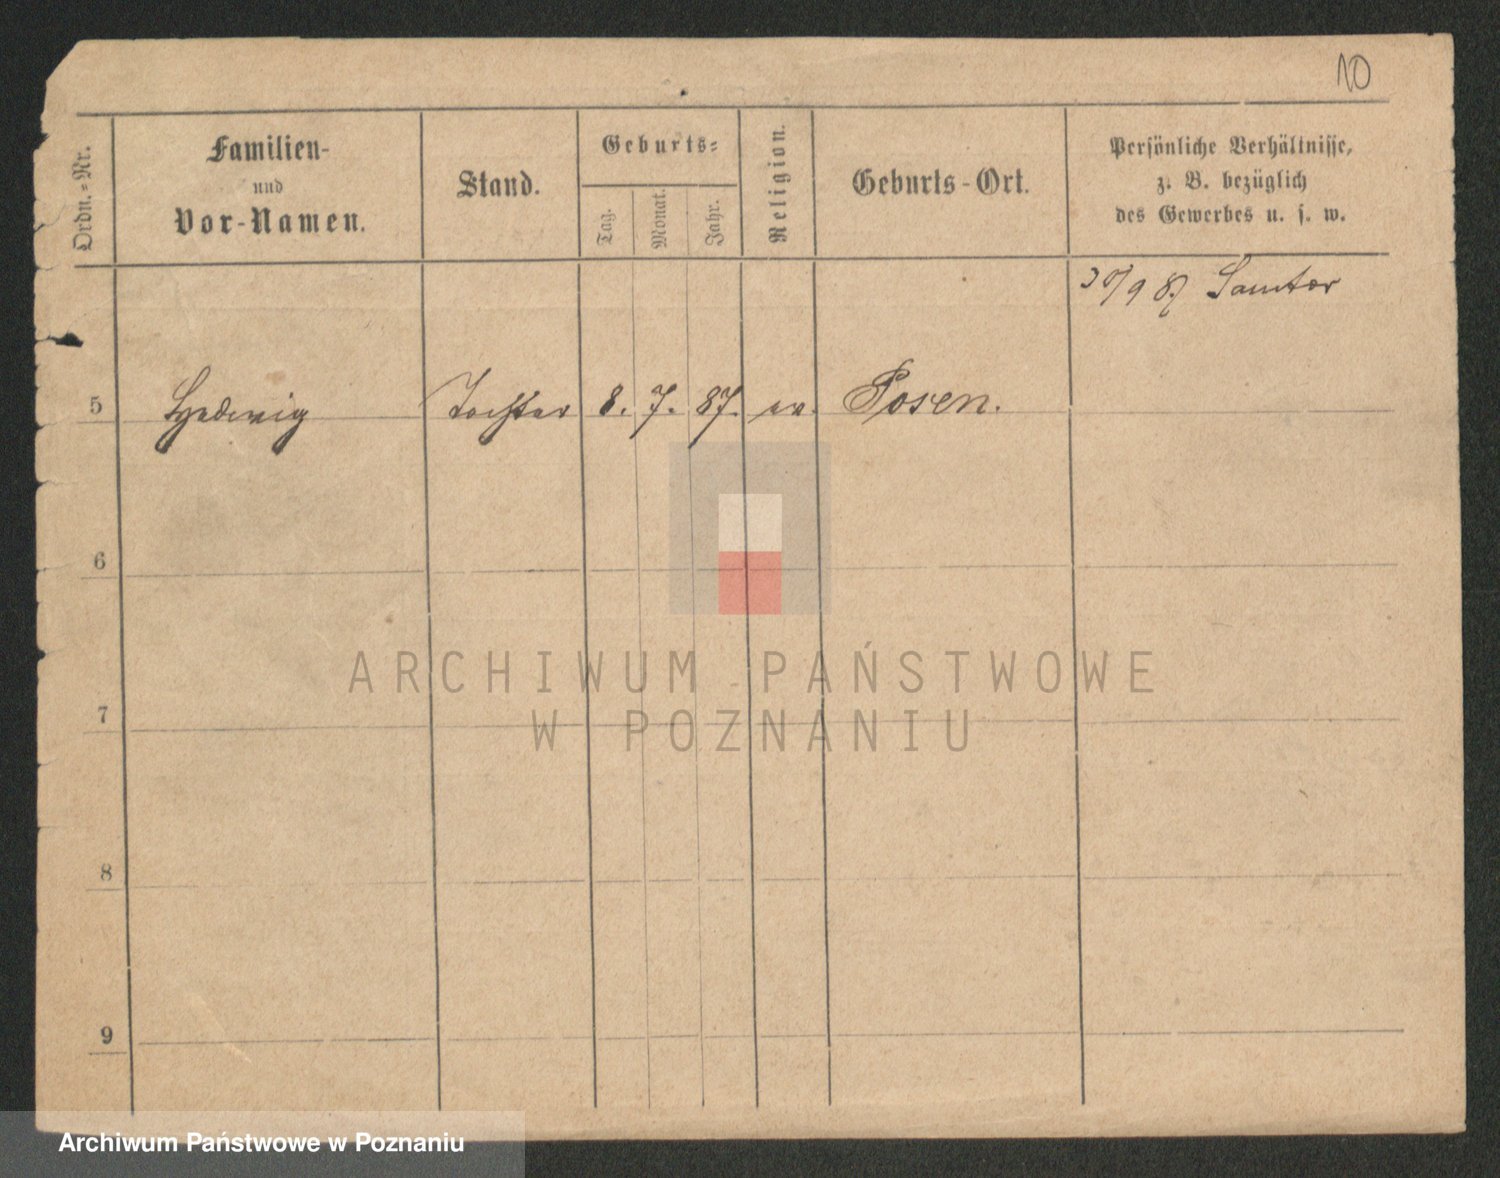 10
Ordn.-Nr.
Familien-
und
Vor-Namen.
Stand.
Geburts-
Tag.
Monat.
Jahr.
Religion.
Geburts-Ort.
Persönliche Verhältnisse,
z. B. bezüglich
des Gewerbes u. s. w.
30/9 87 Samter
5 Hedwig Tochter 8. 7. 87. ev. Posen.
6
7
8
9
ARCHIWUM PAŃSTWOWE
W POZNANIU
Archiwum Państwowe w Poznaniu